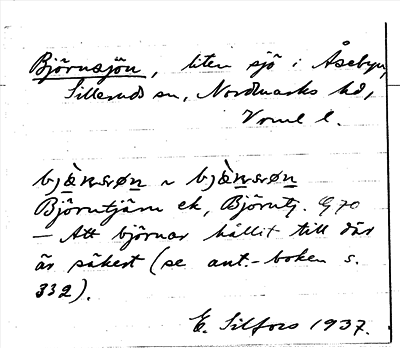 Björnsjön, liten sjö i Åseby,
Sillerud sn, Nordmarks hd,
Vrml l.
bjæ̀ɳsøn ~ bjæ̀ɳsøn
Björntjärn ek, Björntj. G 70
— Att björnar hållit till där
är säkert (se ant.-boken s.
332).
E. Silfors 1937.